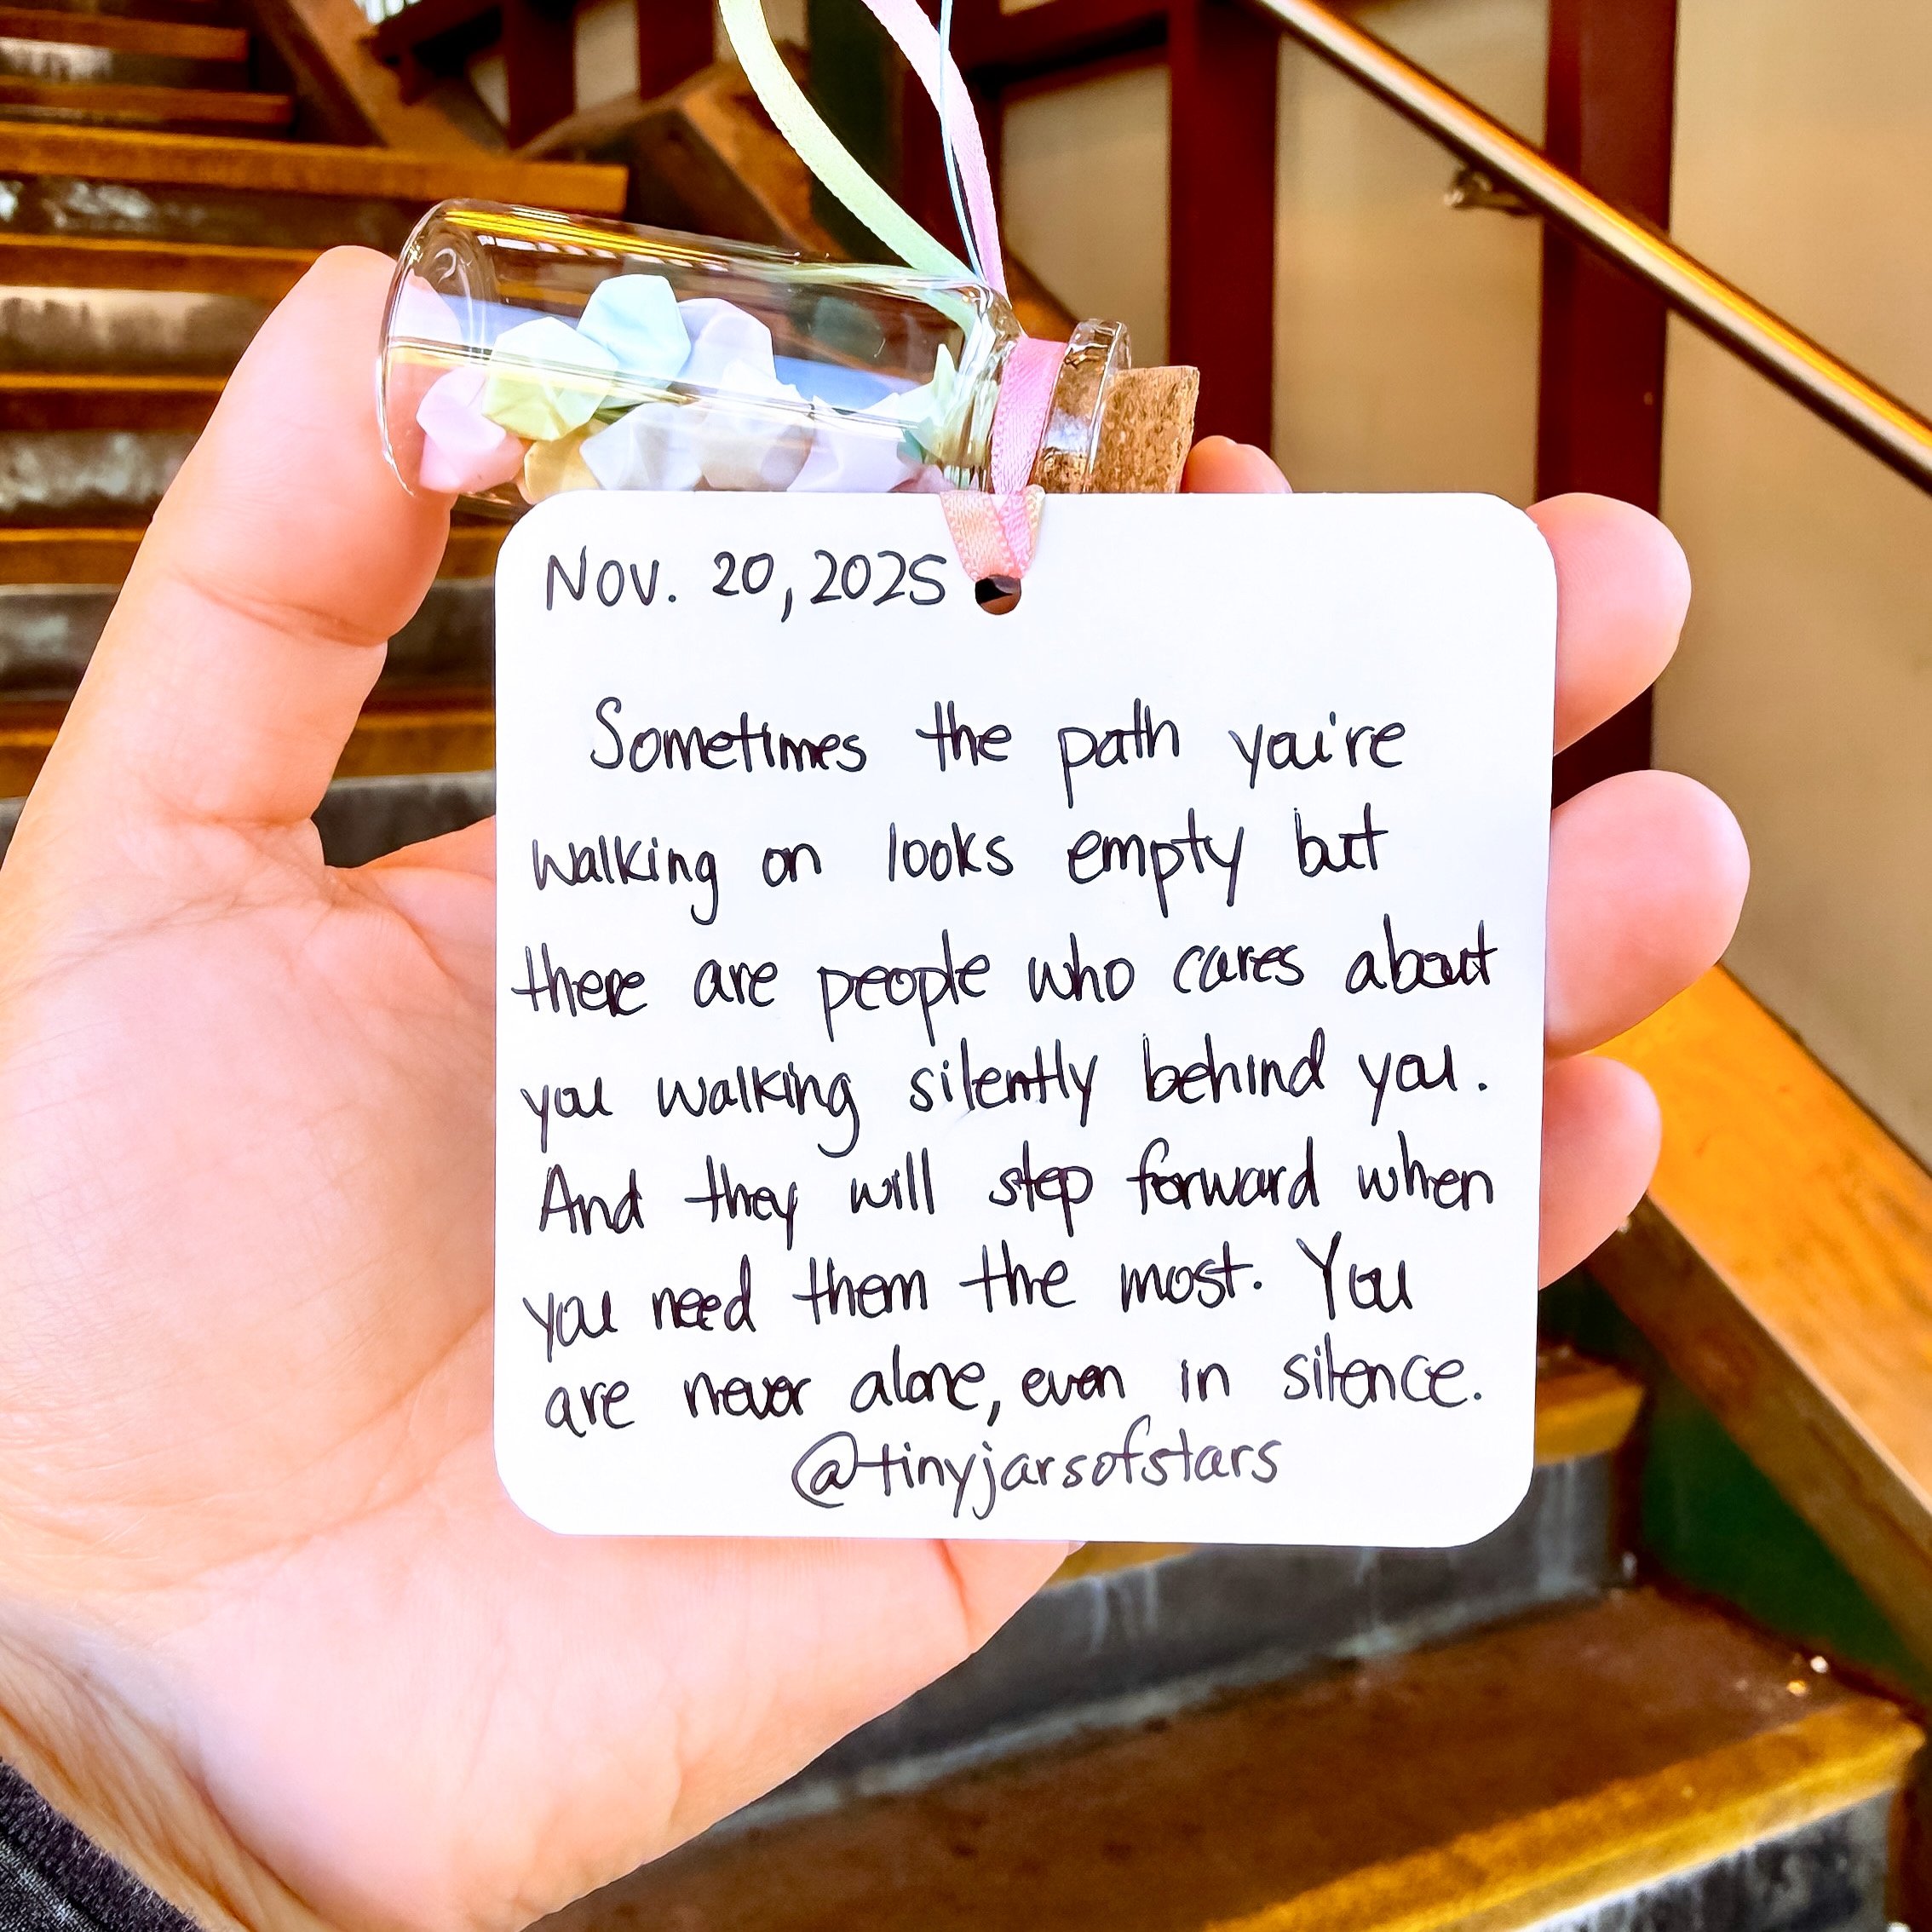 Nov. 20, 2025
Sometimes the path you're
walking on looks empty but
there are people who cares about
you walking silently behind you.
And they will step forward when
you need them the most. You
are never alone, even in silence.
@tinyjarsofstars